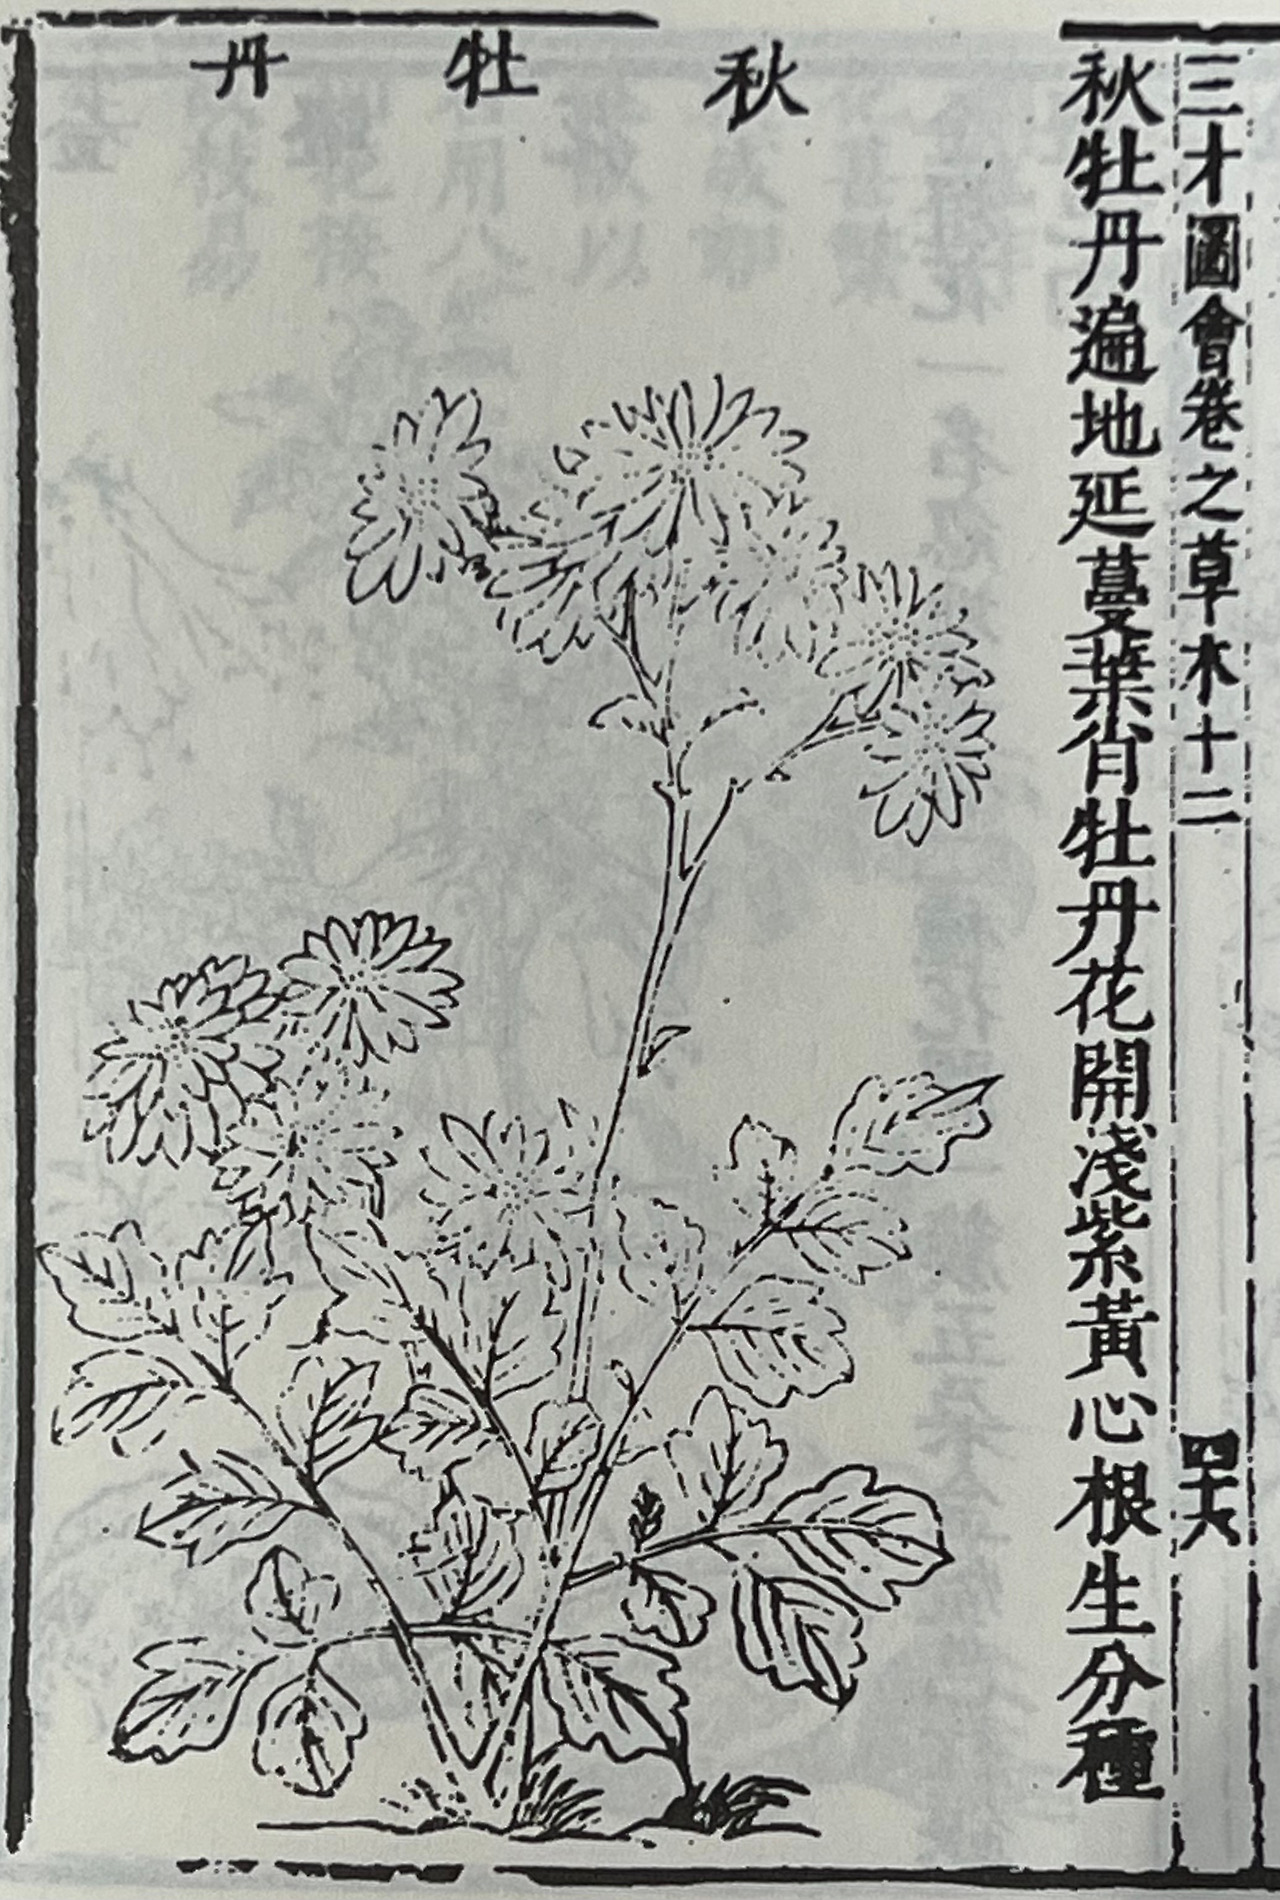 三才圖會卷之草木十二 四十六
秋牡丹遍地延蔓葉肖牡丹花開淺紫黃心根生分種
秋牡丹